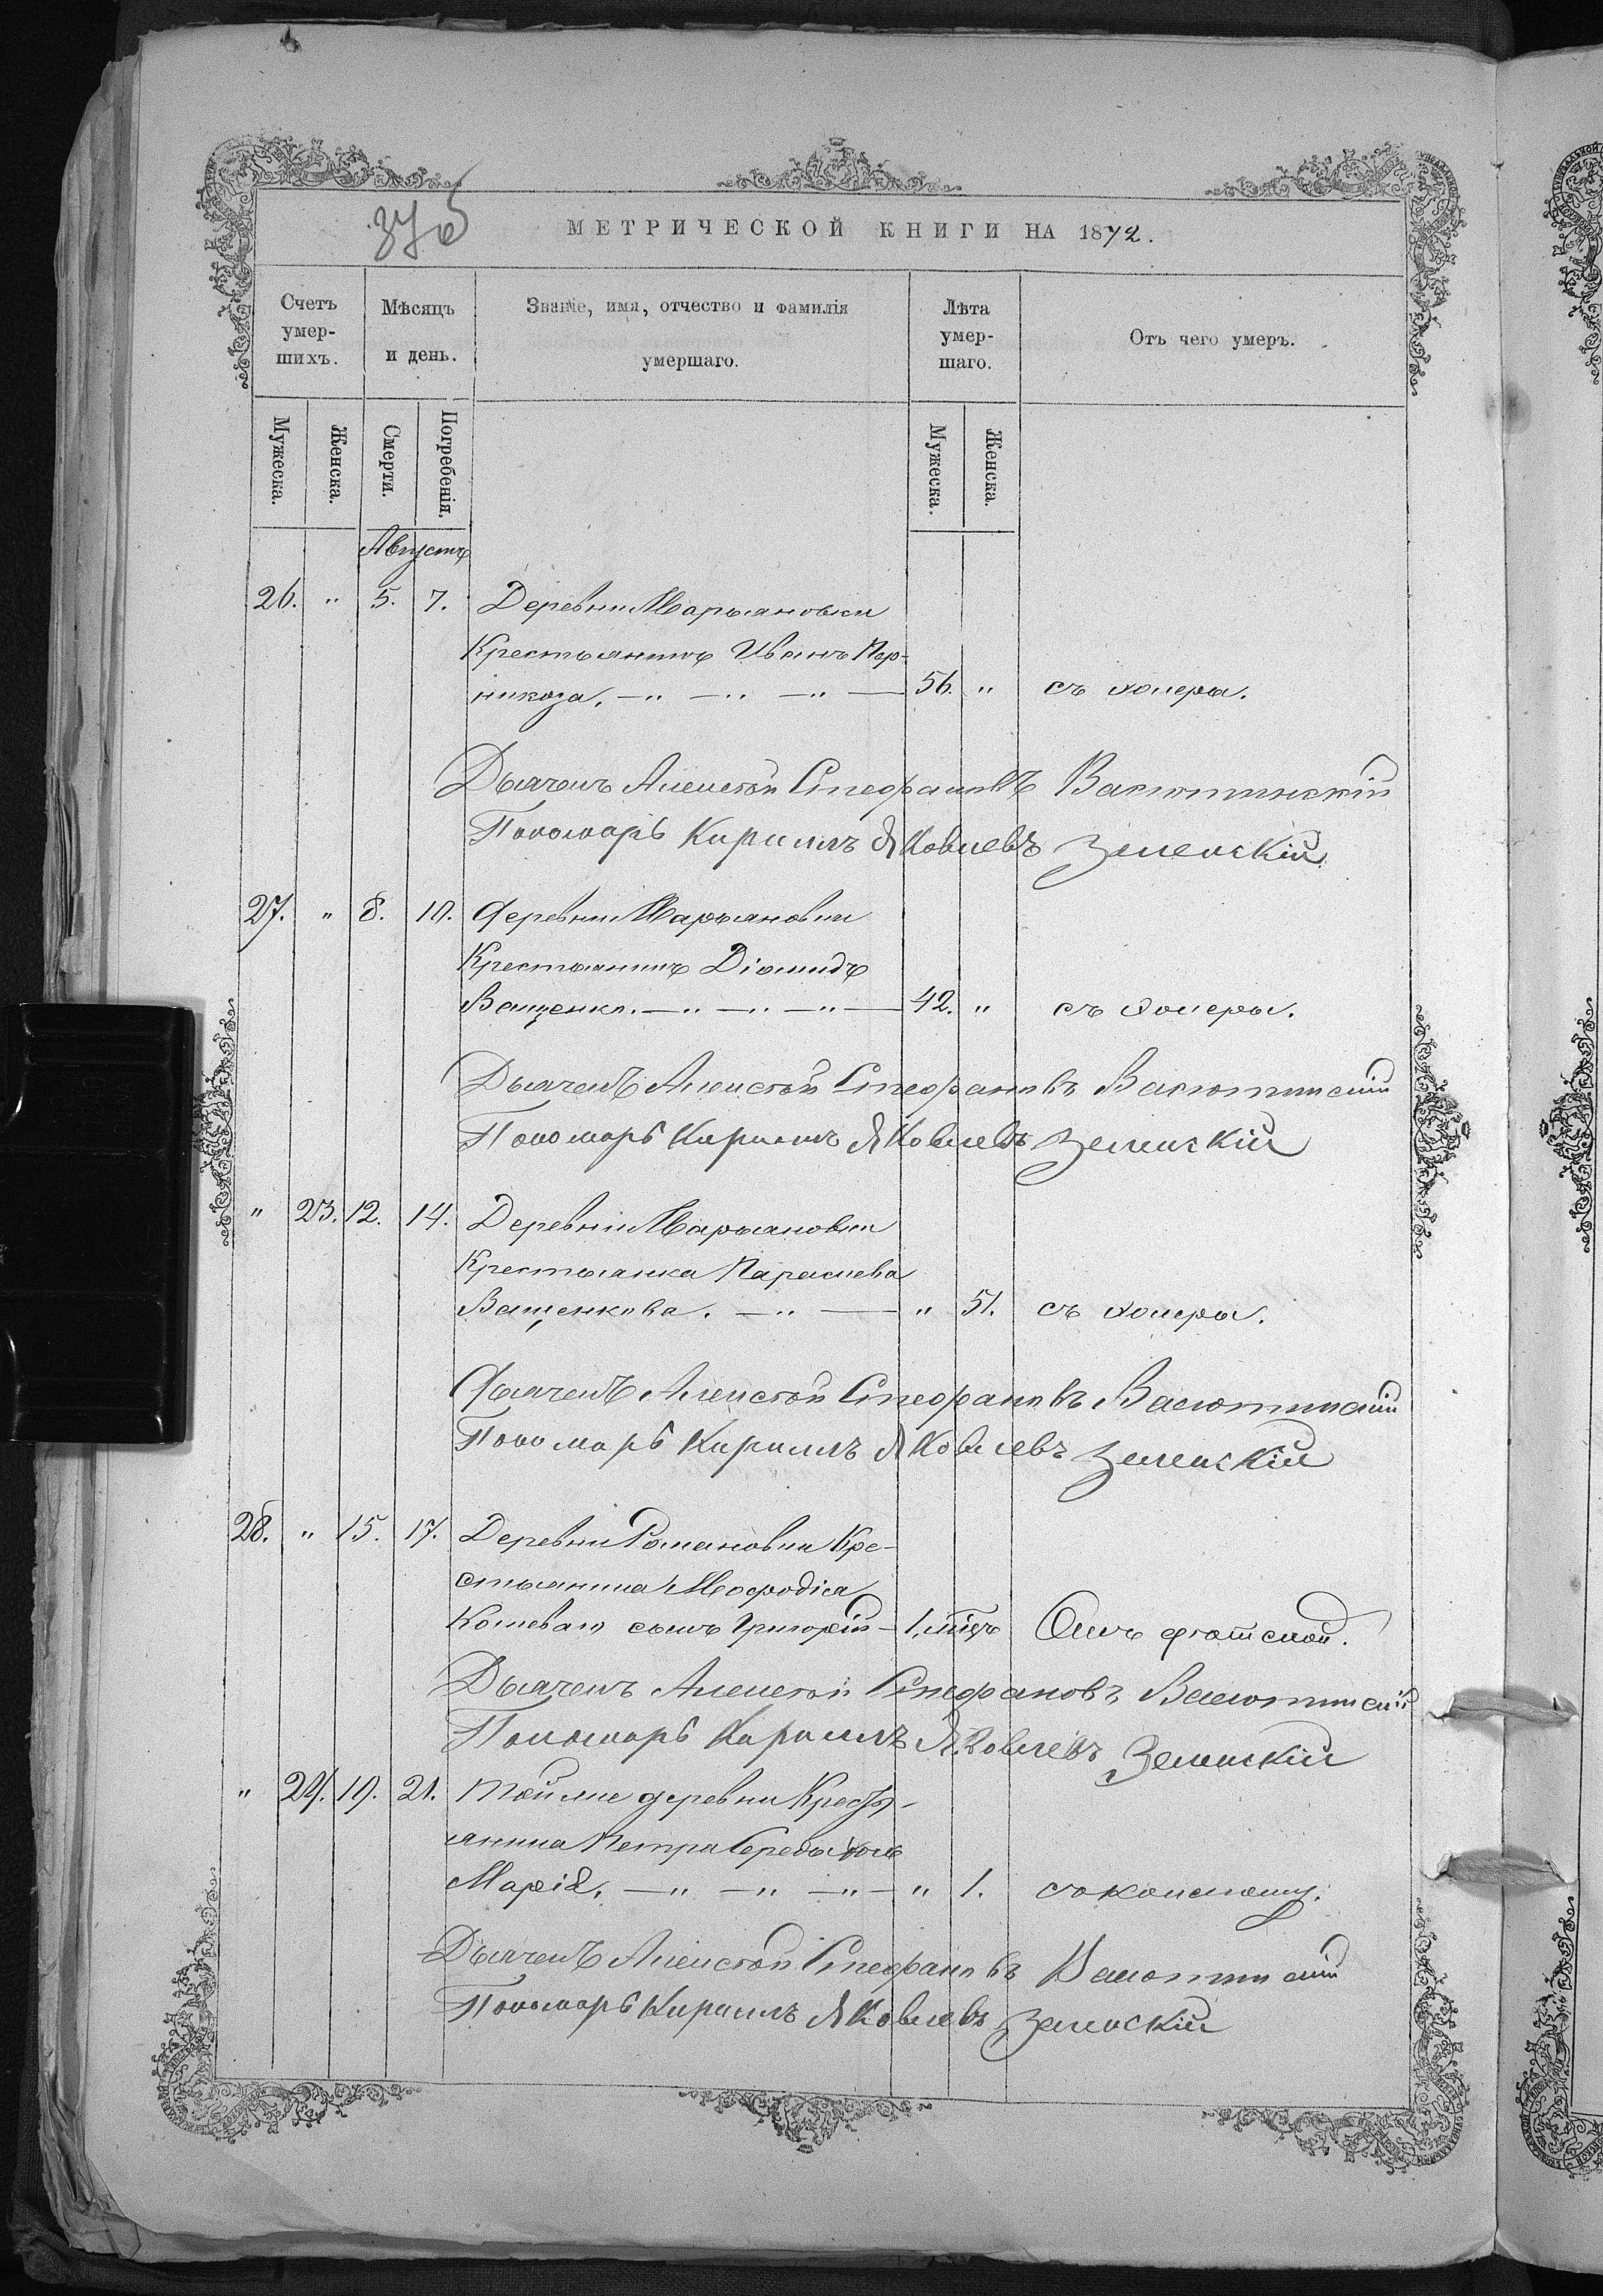 МЕТРИЧЕСКОЙ КНИГИ НА 1872.
Счетъ умер-шихъ.
Мѣсяцъ и день.
Званіе, имя, отчество и фамилія умершаго.
Лѣта умер-шаго.
Отъ чего умеръ.
Мужеска.
Женска.
Смерти.
Погребенія.
Мужеска.
Женска.
Августъ
26. " 5. 7. Деревни Марьяновки
Крестьянинъ Иванъ Пер-
никоза. — " — " — " — 56. " съ холеры.
Дьячекъ Алексѣй Стефановъ Васютинскій
Пономарь Кирилъ Яковлевъ Зеленскій
27. " 8. 10. Деревни Марьяновки
Крестьянинъ Діомидъ
Ващенко. — " — " — " — 42. " съ холеры.
Дьячекъ Алексѣй Стефановъ Васютинскій
Пономарь Кирилъ Яковлевъ Зеленскій
" 23. 12. 14. Деревни Марьяновки
Крестьянка Параскева
Ващенкова. — " — " 51. съ холеры.
Дьячекъ Алексѣй Стефановъ Васютинскій
Пономарь Кирилъ Яковлевъ Зеленскій
28. " 15. 17. Деревни Романовки Кре-
стьянина Меѳодія
Кошеваго сынъ Григорій — 1. Отъ
Дьячекъ Алексѣй Стефановъ Васютинскій
Пономарь Кирилъ Яковлевъ Зеленскій
" 24. 19. 21. Той же деревни Кресть-
янина Петра Середы дочь
Марія. — " — " — " — " 1. съ коклюшу.
Дьячекъ Алексѣй Стефановъ Васютинскій
Пономарь Кирилъ Яковлевъ Зеленскій